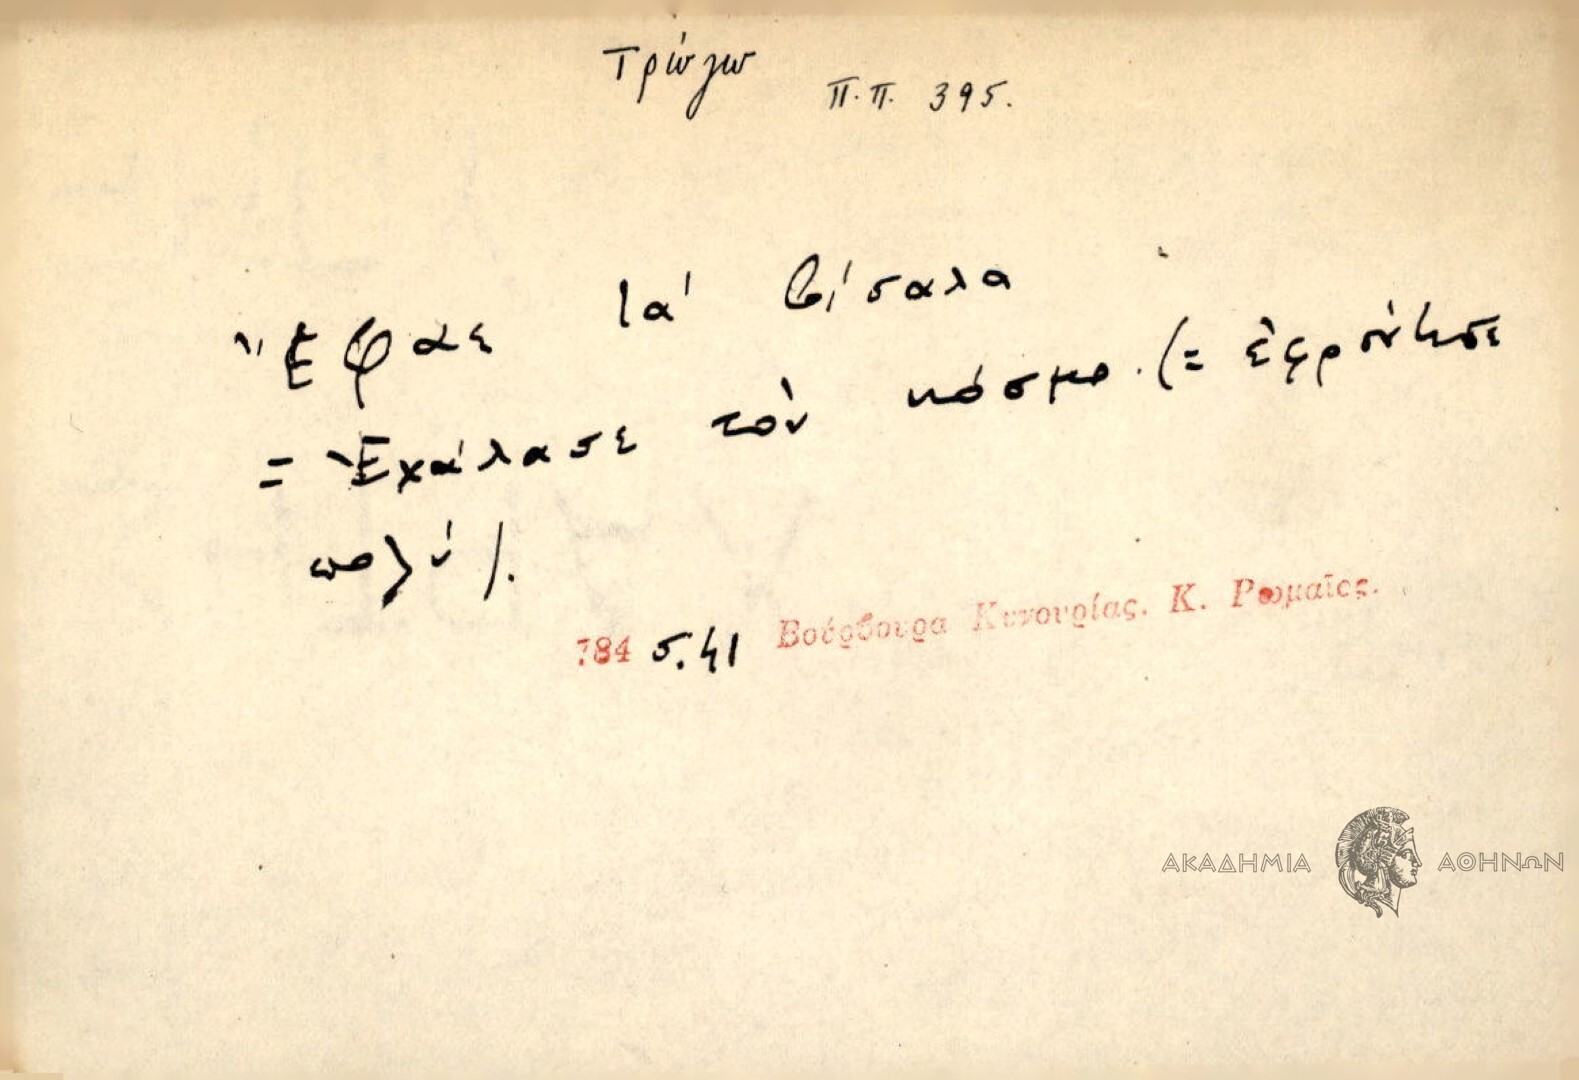 Τρώγω
Π.Π. 395.
Ἔφαε τά βίσαλα
= Ἐχάλασε τὸν κόσμο. (= ἐφρόντισε
πολύ).
784 σ. 41 Βούρβουρα Κυνουρίας. Κ. Ρωμαῖος.
ΑΚΑΔΗΜΙΑ ΑΘΗΝΩΝ